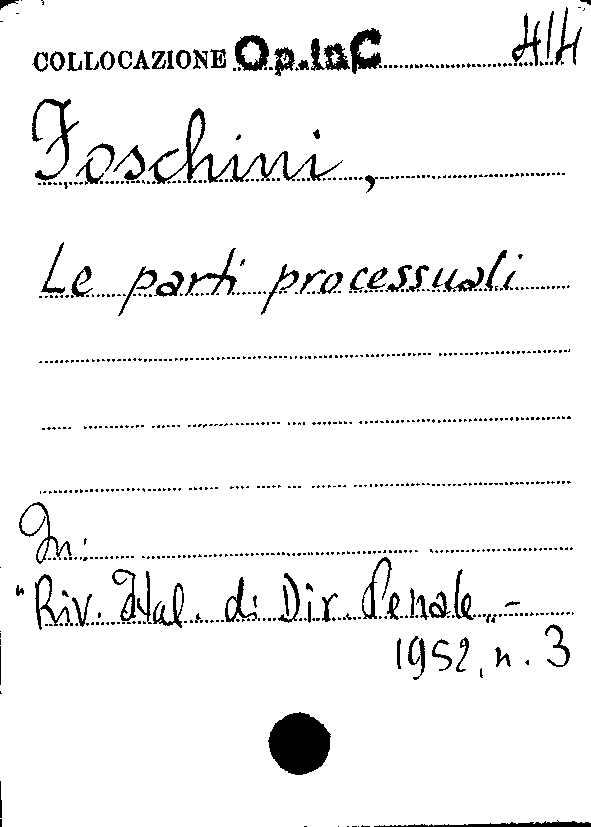 COLLOCAZIONE Op.InC 414
Foschini,
Le parti processuali
In:
"Riv. Ital. di Dir. Penale„ -
1952, n. 3